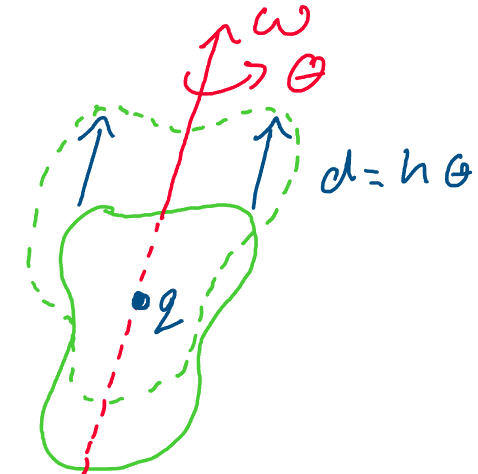 ω
θ
d = h θ
q